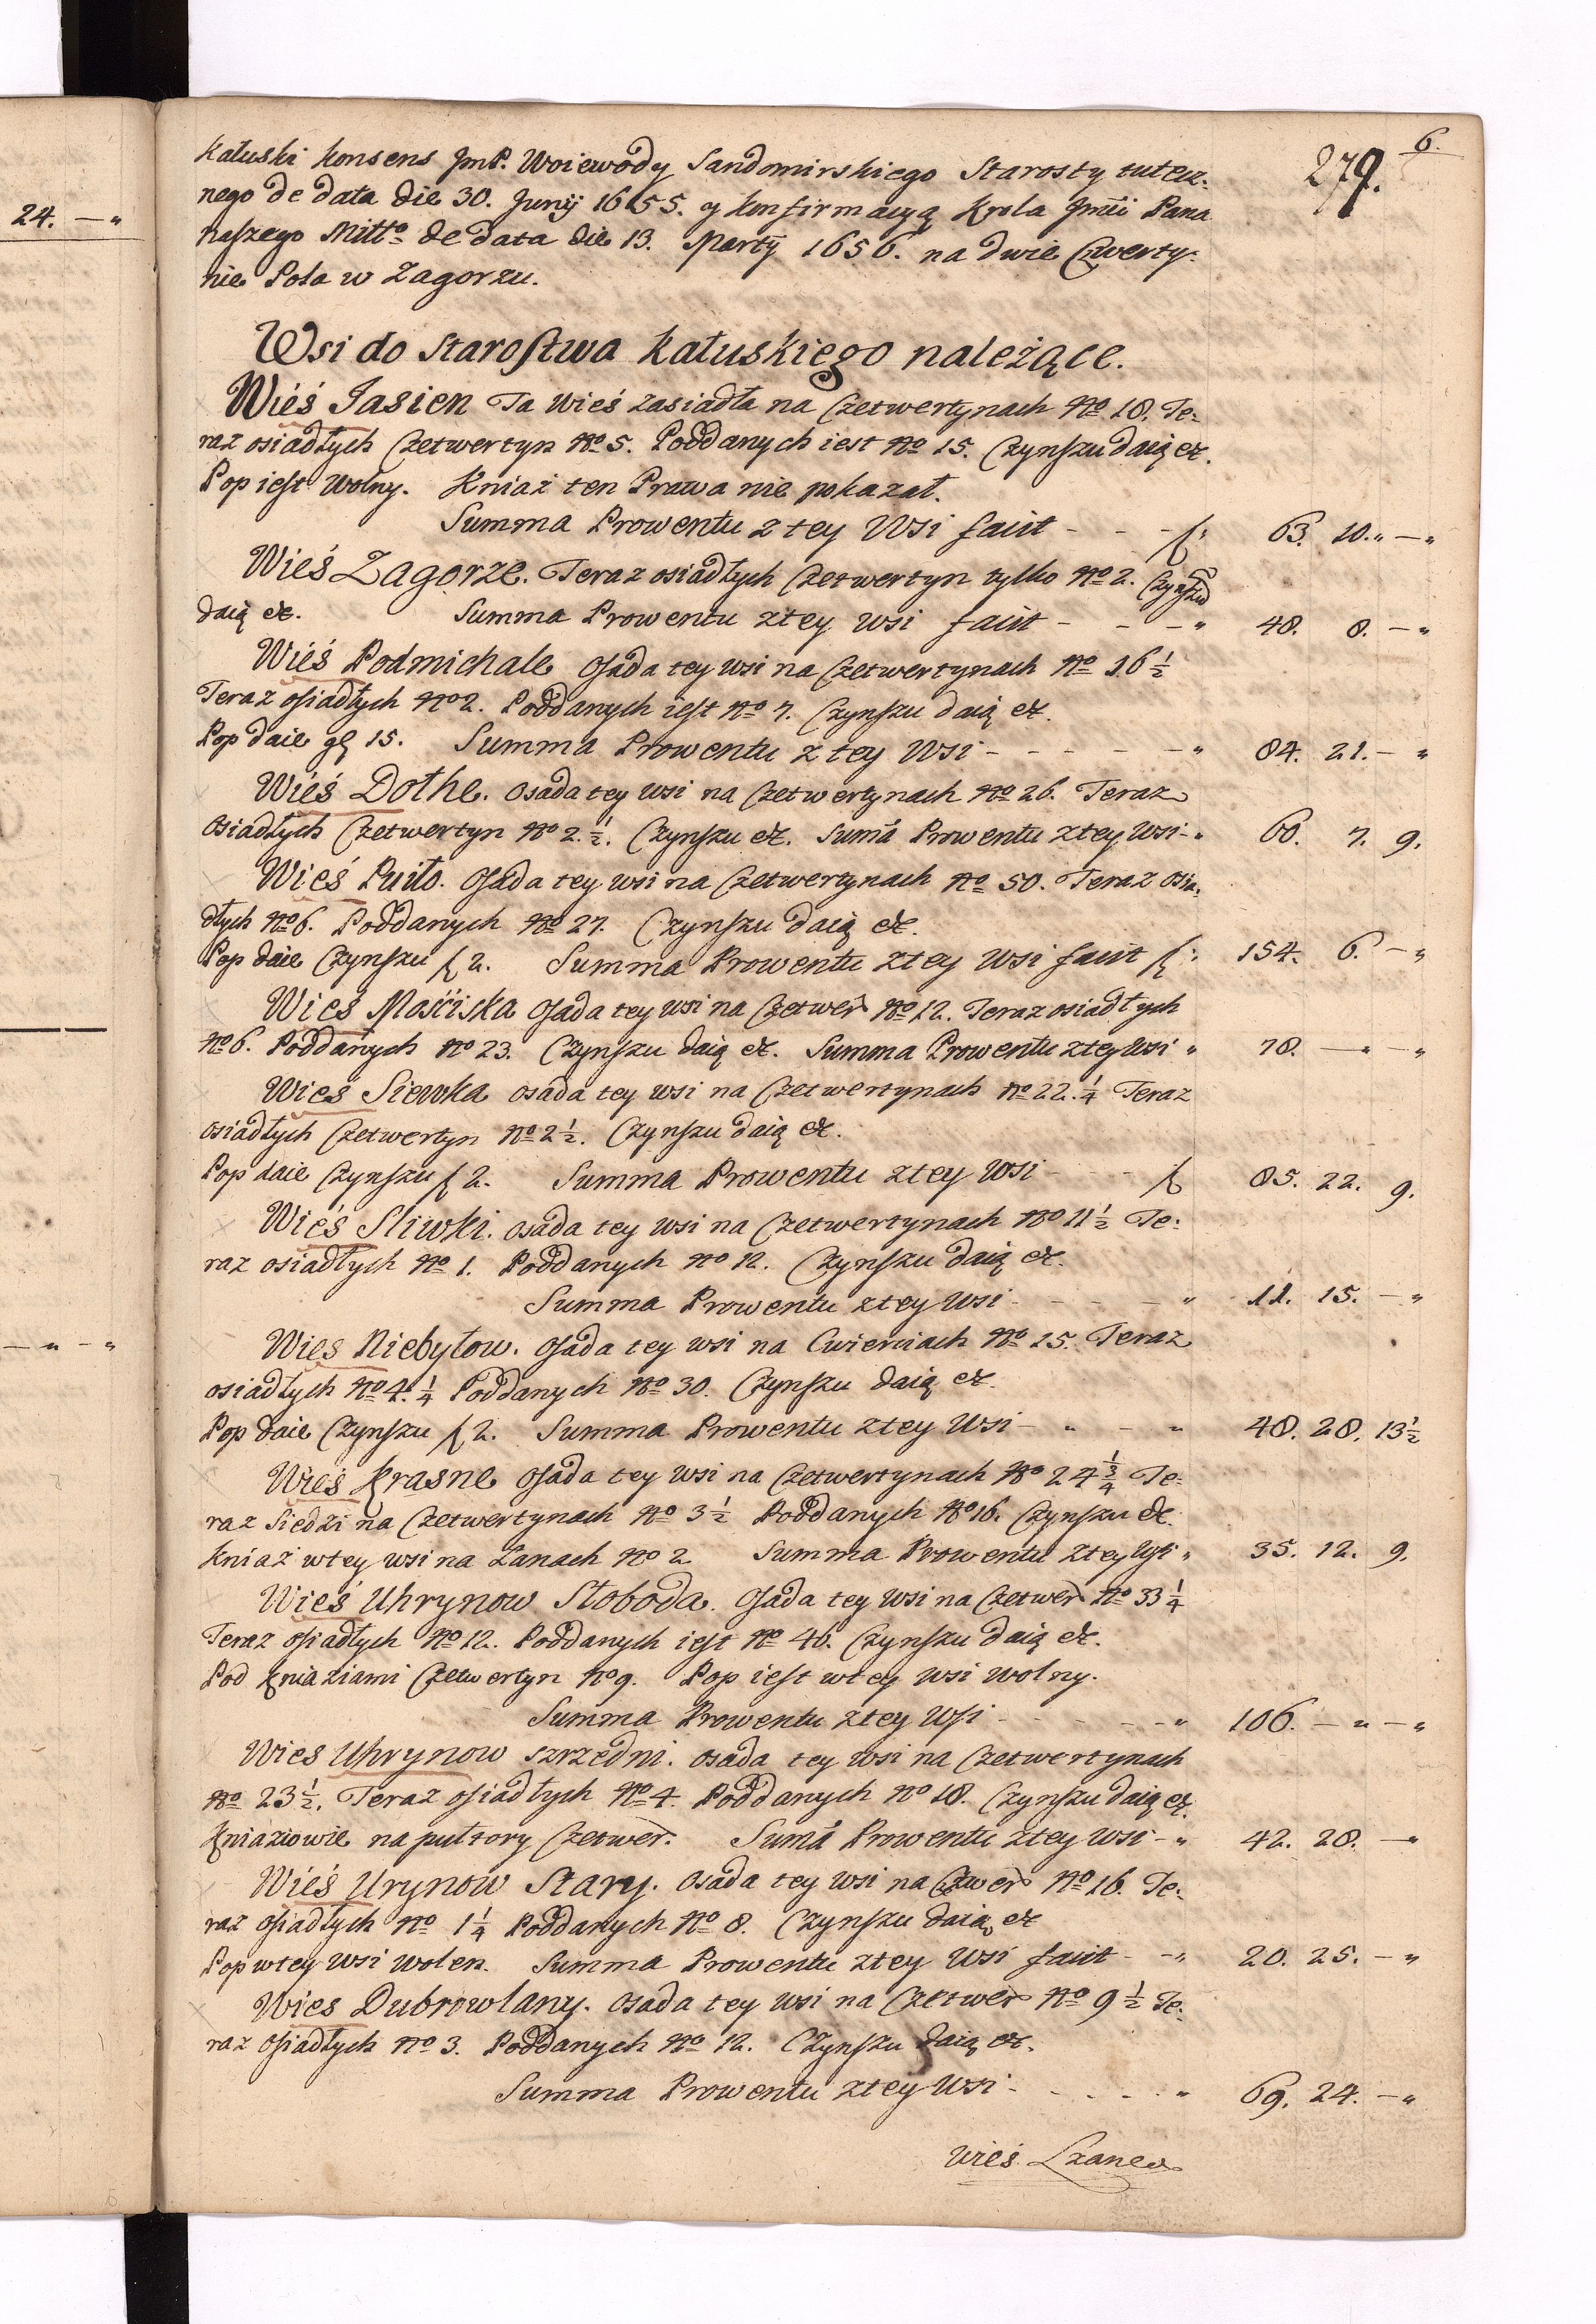 6.
279.
24. — "
Kałuski konsens JmP. Woiewody Sandomirskiego Starosty tutecz:
nego de data die 30. Junÿ 1655. y konfirmacyą Krola Jmći Pana
naszego Mittō de data die 13. Martÿ 1656. na dwie Czwerty:
nie Pola w Zagorzu.
Wsi do Starostwa Kałuskiego należące.
Wieś Jasien Ta Wieś zasiadła na Czetwertynach No 18. Te:
raz osiadłych Czetwertyn No 5. Poddanych iest No 15. Czynszu daią &.
Pop iest Wolny. Kniaź ten Prawa nie pokazał.
Summa Prowentu z tey Wsi facit - - - f: 63. 10. " — "
Wieś Zagorze. Teraz osiadłych Czetwertyn tylko No 2. Czynszu
daią &. Summa Prowentu z tey wsi facit - - - " 48. 8. — "
Wieś Podmichale Osada tey wsi na Czetwertynach No 16 ½
Teraz osiadłych No 2. Poddanych iest No 7. Czynszu daią &.
Pop daie gę 15. Summa Prowentu z tey Wsi - - - - - " 84. 21. — "
Wieś Dołhe. Osada tey wsi na Czetwertynach No 26. Teraz
osiadłych Czetwertyn No 2. ½. Czynszu &. Sumā Prowentu z tey wsi - " 60. 7. 9.
Wieś Puiło. Osada tey wsi na Czetwertynach No 50. Teraz osia:
dłych No 6. Poddanych No 27. Czynszu daią &.
Pop daie Czynszu f 2. Summa Prowentu z tey Wsi facit f: 154. 6. — "
Wieś Mościska Osada tey wsi na Czetwer No 12. Teraz osiadłych
No 6. Poddanych No 23. Czynszu daią &. Summa Prowentu z tey Wsi " 78. — " — "
Wieś Siewka osada tey wsi na Czetwertynach No 22. ¼ Teraz
osiadłych Czetwertyn No 2 ½. Czynszu daią &.
Pop daie Czynszu f 2. Summa Prowentu z tey Wsi - - - f 85. 22. 9.
Wieś Sliwki. osada tey wsi na Czetwertynach No 11 ½ Te:
raz osiadłych No 1. Poddanych No 12. Czynszu daią &.
Summa Prowentu z tey Wsi - - - - " 11. 15. — "
Wies Niebyłow. Osada tey wsi na Cwierciach No 15. Teraz
osiadłych No 4. ¼ Poddanych No 30. Czynszu daią &.
Pop daie Czynszu f 2. Summa Prowentu z tey Wsi - " - " 48. 28. 13 ½
Wieś Krasne Osada tey wsi na Czetwertynach No 24 ¾ Te:
raz siedzi na Czetwertynach No 3 ½ Poddanych No 16. Czynszu &.
Kniaź w tey wsi na Łanach No 2 Summa Prowentu z tey Wsi " 35. 12. 9.
Wieś Uhrynow Słoboda. Osada tey wsi na Czetwer No 33 ¼
Teraz osiadłych No 12. Poddanych iest No 46. Czynszu daią &.
Pod Kniaziami Czetwertyn No 9. Pop iest w tey wsi wolny.
Summa Prowentu z tey Wsi - - - - - " 106. — " — "
Wies Uhrynow szrzedni. osada tey wsi na Czetwertynach
No 23 ½. Teraz osiadłych No 4. Poddanych No 18. Czynszu daią &.
Kniaziowie na pułtory Czetwer. Sumā Prowentu z tey wsi - " 42. 28. — "
Wieś Urynow Stary. Osada tey wsi na Czwer No 16. Te:
raz osiadłych No 1 ¼ Poddanych No 8. Czynszu daią &
Pop w tey wsi wolen. Summa Prowentu z tey Wsi facit - - " 20. 25. — "
Wies Dubrowlany. Osada tey wsi na Czetwer No 9 ½ Te:
raz osiadłych No 3. Poddanych No 12. Czynszu daią &.
Summa Prowentu z tey Wsi - - - - - " 69. 24. — "
wieś